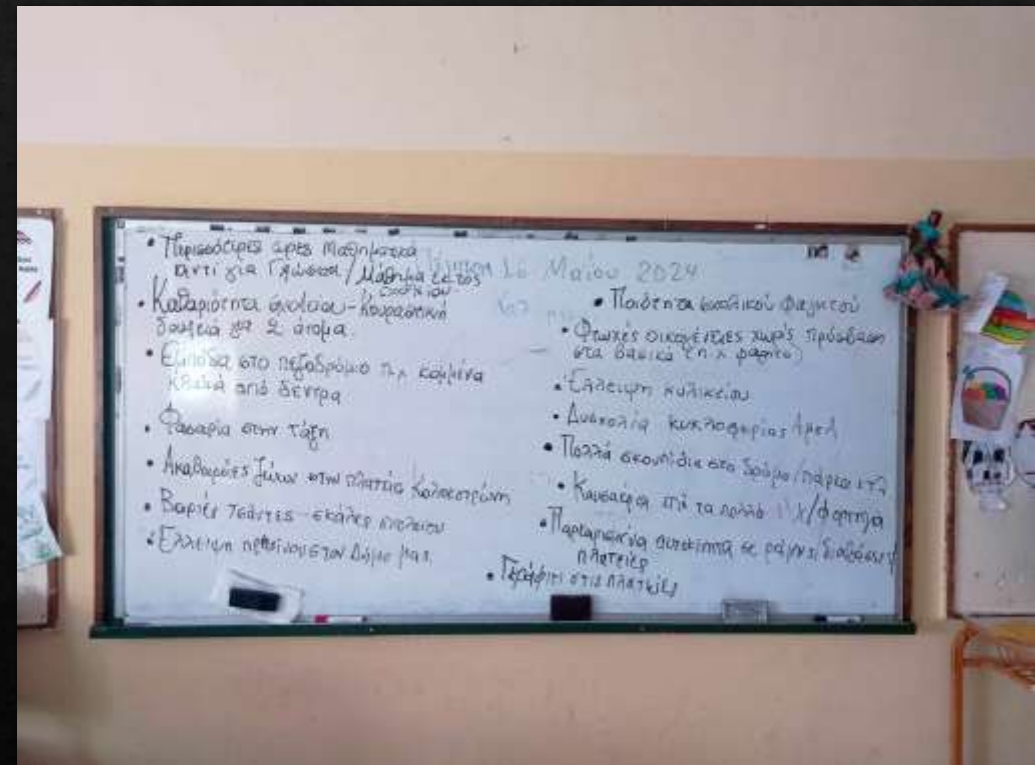 16 Μαΐου 2024
• Περισσότερες ώρες Μαθηματικά
αντί για Γλώσσα / Μάθημα εκτός
σχολείου
• Καθαριότητα σχολείου - Κουραστική
δουλειά για 2 άτομα.
• Εμπόδια στο πεζοδρόμιο π.χ κομμένα
κλαδιά από δέντρα
• Φασαρία στην τάξη
• Ακαθαρσίες ζώων στην πλατεία Κολοκοτρώνη
• Βαριές τσάντες - σκάλες σχολείου
• Έλλειψη πρασίνου στον Δήμο μας.
• Ποιότητα σχολικού φαγητού
• Φτωχές οικογένειες χωρίς πρόσβαση
στα βασικά (π.χ φαγητό)
• Έλλειψη κυλικείου
• Δυσκολία κυκλοφορίας ΑμεΑ
• Πολλά σκουπίδια στο δρόμο/πάρκα κτλ
• Καυσαέρια από τα πολλά Ι.Χ/φορτηγά
• Παρκαρισμένα αυτοκίνητα σε ράμπες/διαβάσεις/
πλατείες
• Γκράφιτι στις πλατείες